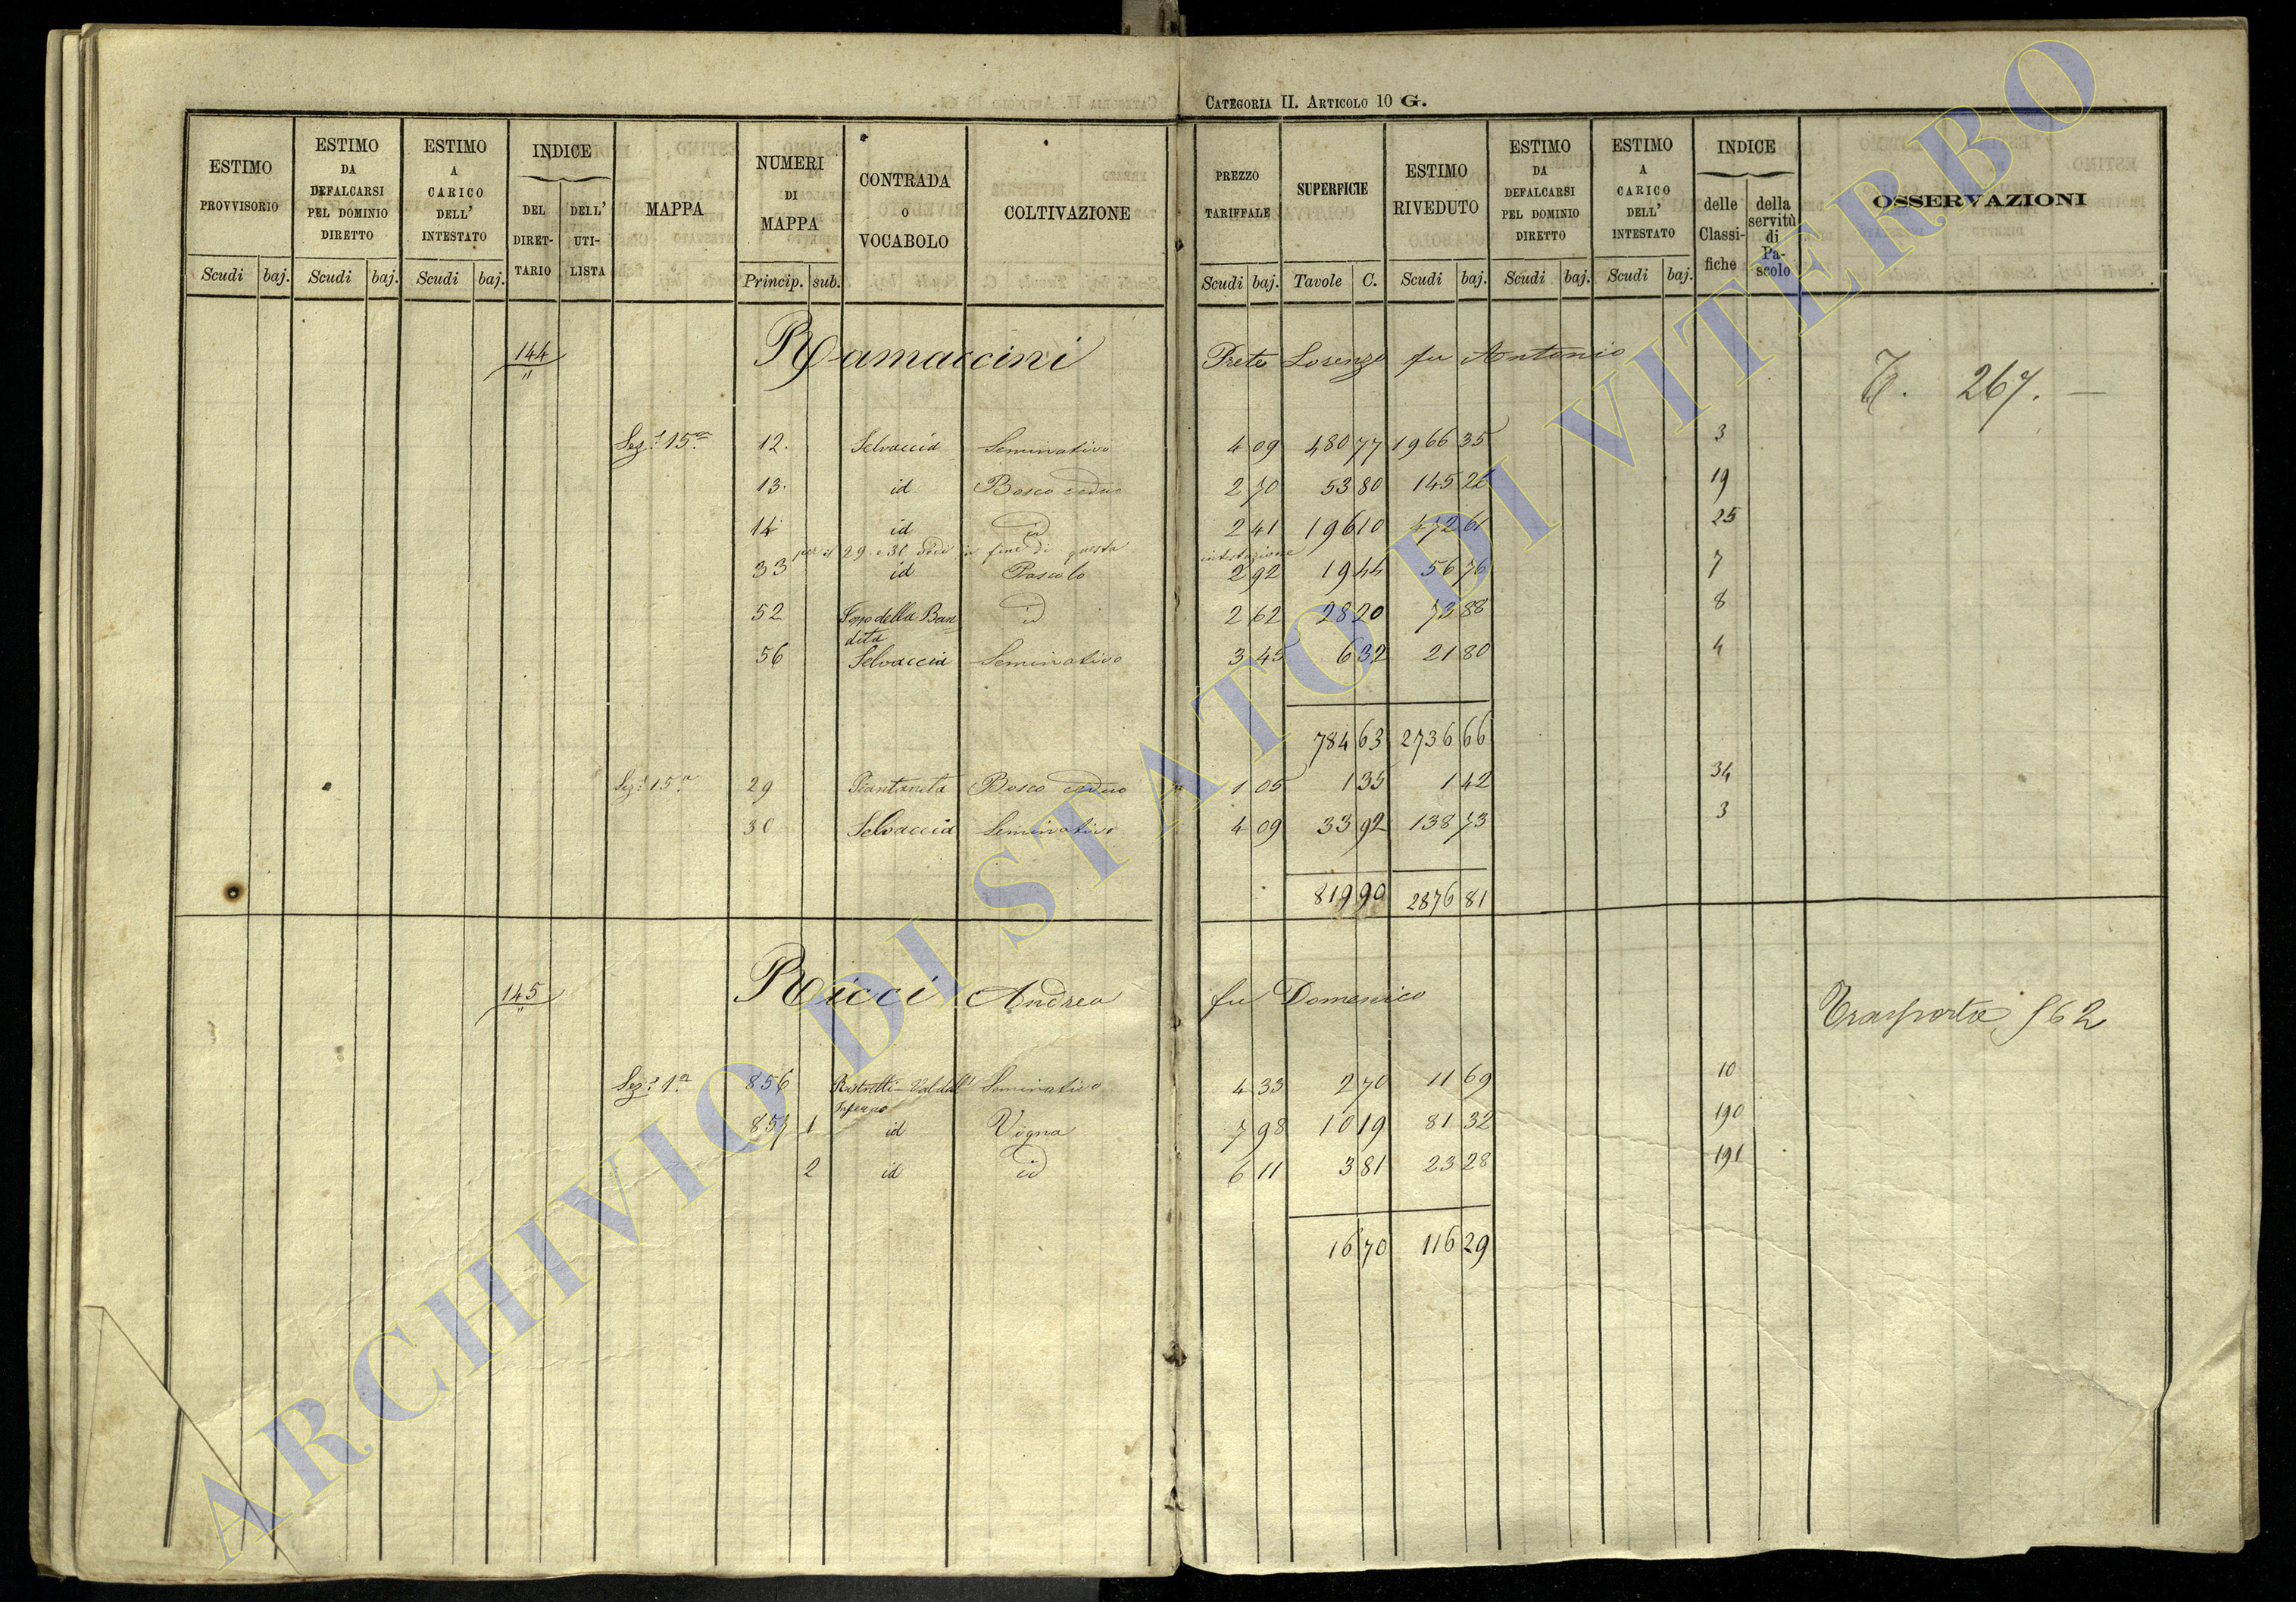 CATEGORIA II. ARTICOLO 10 G.
ESTIMO PROVVISORIO Scudi baj.
ESTIMO DA DEFALCARSI PEL DOMINIO DIRETTO Scudi baj.
ESTIMO A CARICO DELL' INTESTATO Scudi baj.
INDICE DEL DIRET- TARIO DELL' UTI- LISTA
MAPPA
NUMERI DI MAPPA Princip. sub.
CONTRADA O VOCABOLO
COLTIVAZIONE
PREZZO TARIFFALE Scudi baj.
SUPERFICIE Tavole C.
ESTIMO RIVEDUTO Scudi baj.
ESTIMO DA DEFALCARSI PEL DOMINIO DIRETTO Scudi baj.
ESTIMO A CARICO DELL' INTESTATO Scudi baj.
INDICE delle Classi- fiche della servitù di Pa- scolo
OSSERVAZIONI
144 Ramaccini Prete Lorenzo fu Antonio
T. 267. —
Sez.e 15a 12. Selvaccia Seminativo 4 09 480 77 1966 35 3
13. id Bosco ceduo 2 70 53 80 145 26 19
14 id id 2 41 196 10 472 61 25
per il 29 e 30 vedi in fine di questa intestazione
33 id Pascolo 2 92 19 44 56 76 7
52 Fosso della Ban= dita id 2 62 28 20 73 88 8
56 Selvaccia Seminativo 3 45 6 32 21 80 4
784 63 2736 66
Sez.e 15.a 29 Piantaneta Bosco ceduo 1 05 1 35 1 42 34
30 Selvaccia Seminativo 4 09 33 92 138 73 3
819 90 2876 81
145 Ricci Andrea fu Domenico
Trasporto 562
Sez.e 1.a 856 Ristretti Val dell' Inferno Seminativo 4 33 2 70 11 69 10
857 1 id Vigna 7 98 10 19 81 32 190
2 id id 6 11 3 81 23 28 191
16 70 116 29
ARCHIVIO DI STATO DI VITERBO